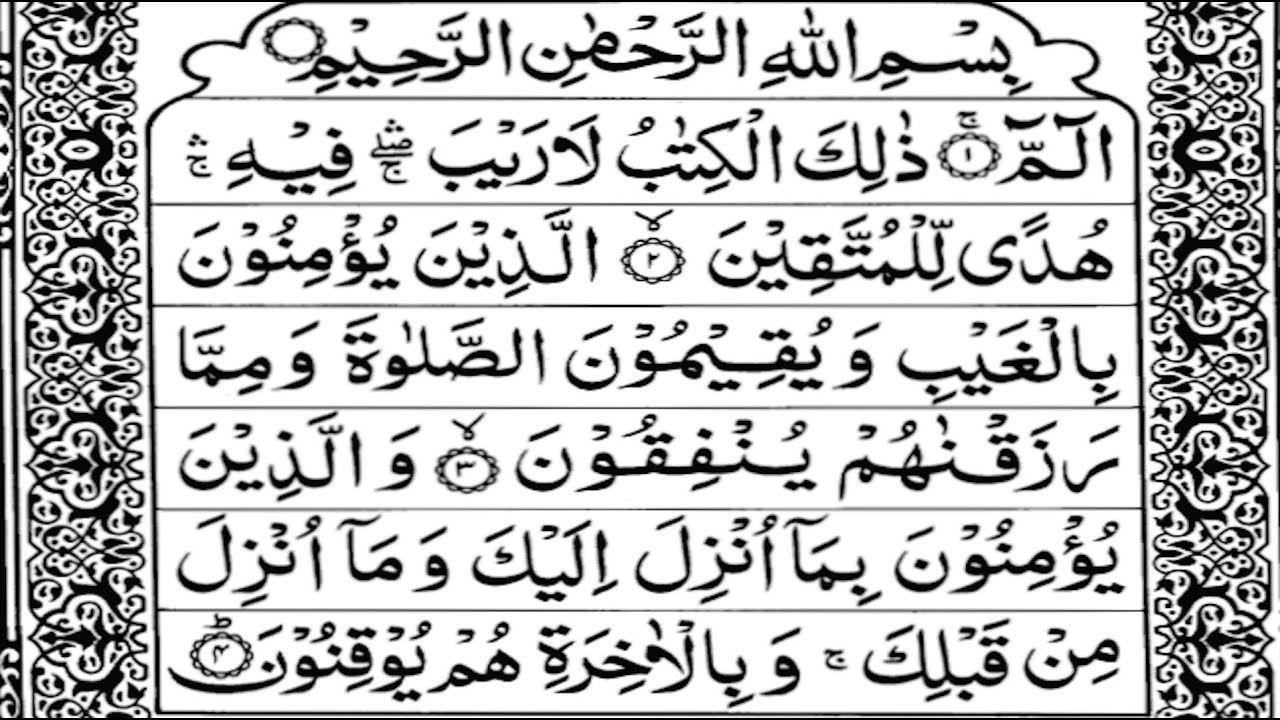 بِسْمِ اللّٰهِ الرَّحْمٰنِ الرَّحِيْمِ ۝
الٓمّٓ ۚ‏﴿۱﴾ ذٰلِكَ الْكِتٰبُ لَا رَيْبَ ۛۖۚ فِيْهِ ۛۚ
هُدًى لِّلْمُتَّقِيْنَ ۙ‏﴿۲﴾ الَّذِيْنَ يُؤْمِنُوْنَ
بِالْغَيْبِ وَيُقِيْمُوْنَ الصَّلٰوةَ وَمِمَّا
رَزَقْنٰهُمْ يُنْفِقُوْنَ ۙ‏﴿۳﴾ وَالَّذِيْنَ
يُؤْمِنُوْنَ بِمَآ اُنْزِلَ اِلَيْكَ وَمَآ اُنْزِلَ
مِنْ قَبْلِكَ ۚ وَبِالْاٰخِرَةِ هُمْ يُوْقِنُوْنَ ؕ‏﴿۴﴾